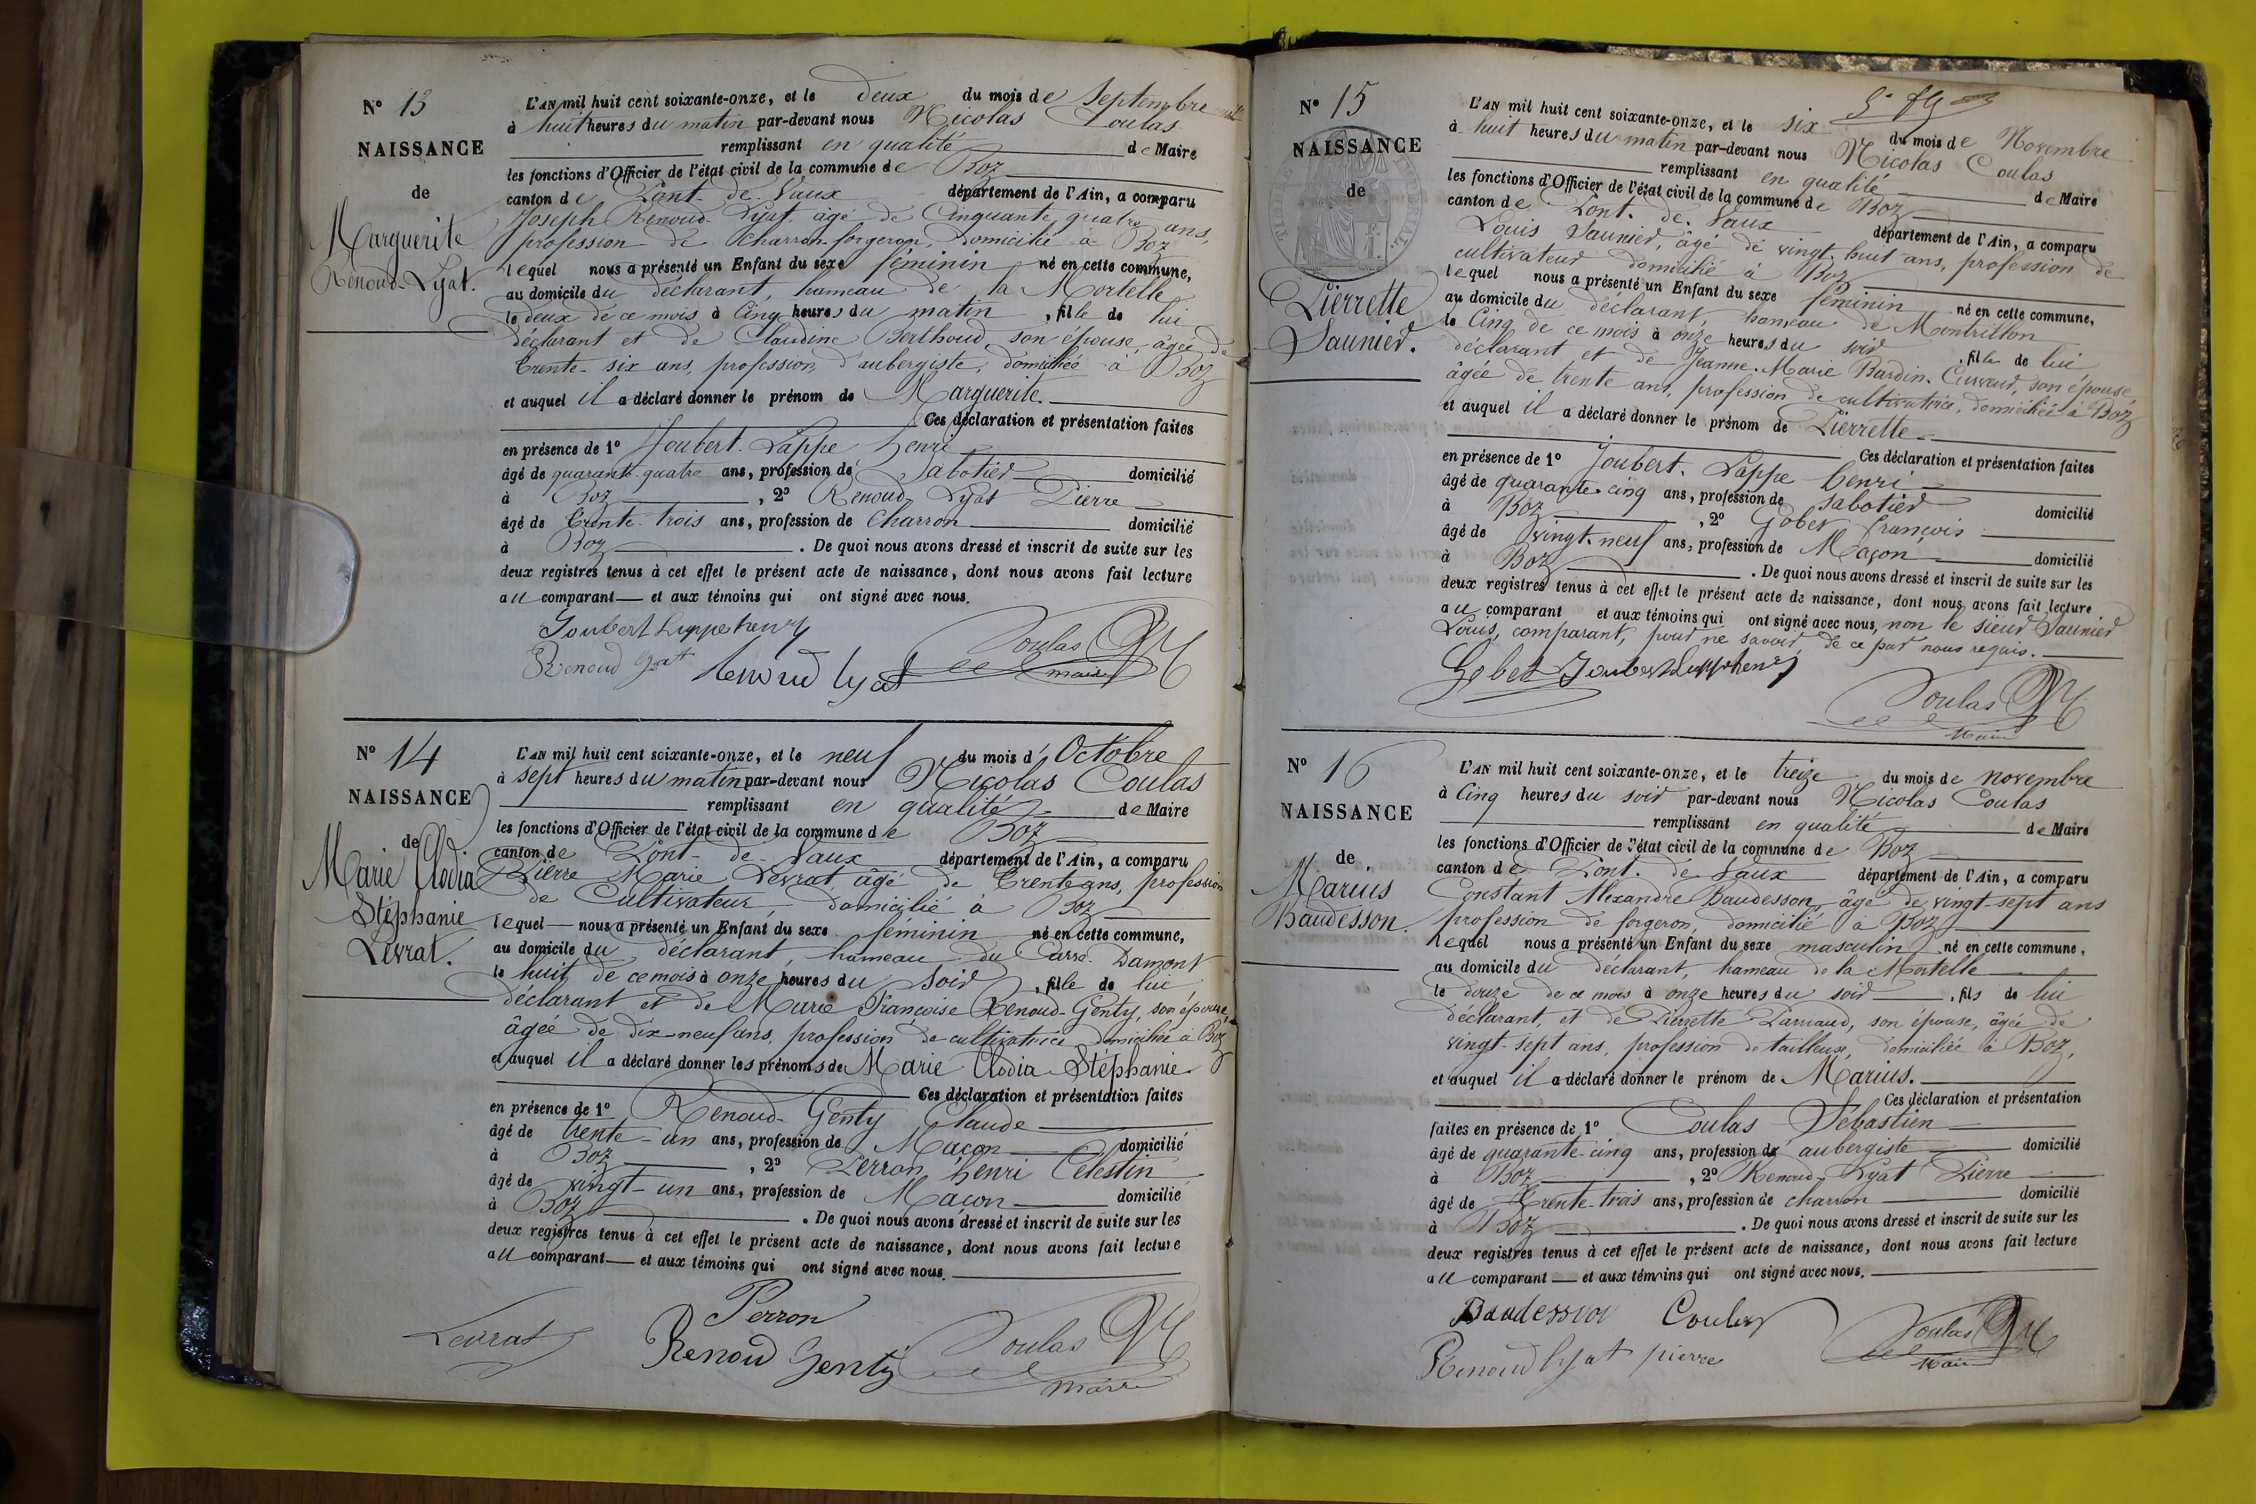 N° 13
NAISSANCE
de
Marguerite
Renoud-Lyat.
L'AN mil huit cent soixante-onze, et le deux du mois de Septembre
à huit heures du matin par-devant nous Nicolas Coulas
remplissant en qualité de Maire
les fonctions d'Officier de l'état civil de la commune de Boz
canton de Pont-de-Vaux département de l'Ain, a comparu
Joseph Renoud-Lyat âgé de Cinquante quatre ans,
profession de charron-forgeron, domicilié à Boz
lequel nous a présenté un Enfant du sexe féminin né en cette commune,
au domicile du déclarant, hameau de la Mortelle
le deux de ce mois à Cinq heures du matin, fille de lui
déclarant et de Claudine Berthoud, son épouse, âgée de
Trente-six ans, profession d'aubergiste, domiciliée à Boz
et auquel il a déclaré donner le prénom de Marguerite.
Ces déclaration et présentation faites
en présence de 1° Joubert-Lappe henri
âgé de quarante-quatre ans, profession de Sabotier domicilié
à Boz, 2° Renoud Lyat Pierre
âgé de Trente-trois ans, profession de Charron domicilié
à Boz. De quoi nous avons dressé et inscrit de suite sur les
deux registres tenus à cet effet le présent acte de naissance, dont nous avons fait lecture
au comparant — et aux témoins qui ont signé avec nous.
Joubert Luppe henry
Renoud Lyat Renoud Lyat Coulas
maire
N° 14
NAISSANCE
de
Marie Clodia
Stéphanie
Levrat.
L'AN mil huit cent soixante-onze, et le neuf du mois d'Octobre
à sept heures du matin par-devant nous Nicolas Coulas
remplissant en qualité de Maire
les fonctions d'Officier de l'état civil de la commune de Boz
canton de Pont-de-Vaux département de l'Ain, a comparu
Pierre Marie Levrat, âgé de Trente ans, profession
de Cultivateur, domicilié à Boz
lequel — nous a présenté un Enfant du sexe féminin né en cette commune,
au domicile du déclarant, hameau du Carré-Damont
le huit de ce mois à onze heures du soir, fille de lui
déclarant et de Marie Françoise Renoud-Genty, son épouse,
âgée de dix-neuf ans, profession de cultivatrice domiciliée à Boz
et auquel il a déclaré donner les prénoms de Marie Clodia Stéphanie
Ces déclaration et présentation faites
en présence de 1° Renoud-Genty Claude
âgé de trente-un ans, profession de Maçon domicilié
à Boz, 2° Perron henri Célestin
âgé de vingt-un ans, profession de Maçon domicilié
à Boz. De quoi nous avons dressé et inscrit de suite sur les
deux registres tenus à cet effet le présent acte de naissance, dont nous avons fait lecture
au comparant — et aux témoins qui ont signé avec nous.
Perron
Levrat Renoud Genty Coulas
maire
N° 15
NAISSANCE
de
Pierrette
Saunier.
L'AN mil huit cent soixante-onze, et le six du mois de Novembre
à huit heures du matin par-devant nous Nicolas Coulas
remplissant en qualité de Maire
les fonctions d'Officier de l'état civil de la commune de Boz
canton de Pont-de-Vaux département de l'Ain, a comparu
Louis Saunier, âgé de vingt-huit ans, profession de
cultivateur domicilié à Boz
lequel nous a présenté un Enfant du sexe féminin né en cette commune,
au domicile du déclarant, hameau de Montrillon
le Cinq de ce mois à onze heures du soir, fille de lui
déclarant et de Jeanne-Marie Bardin-Curveur, son épouse,
âgée de trente ans, profession de cultivatrice, domiciliée à Boz
et auquel il a déclaré donner le prénom de Pierrette
Ces déclaration et présentation faites
en présence de 1° Joubert-Lappe henri
âgé de quarante-cinq ans, profession de sabotier domicilié
à Boz, 2° Gobet françois
âgé de vingt-neuf ans, profession de Maçon domicilié
à Boz. De quoi nous avons dressé et inscrit de suite sur les
deux registres tenus à cet effet le présent acte de naissance, dont nous avons fait lecture
au comparant et aux témoins qui ont signé avec nous, non le sieur Saunier
Louis, comparant, pour ne savoir, de ce par nous requis.
Gobet Joubert Luppe henry
Coulas
Maire
N° 16
NAISSANCE
de
Marius
Baudesson.
L'AN mil huit cent soixante-onze, et le treize du mois de novembre
à Cinq heures du soir par-devant nous Nicolas Coulas
remplissant en qualité de Maire
les fonctions d'Officier de l'état civil de la commune de Boz
canton de Pont-de-Vaux département de l'Ain, a comparu
Constant Alexandre Baudesson, âgé de vingt-sept ans
profession de forgeron, domicilié à Boz
lequel nous a présenté un Enfant du sexe masculin né en cette commune,
au domicile du déclarant, hameau de la Mortelle
le douze de ce mois à onze heures du soir, fils de lui
déclarant, et de Pierrette Parriaud, son épouse, âgée de
vingt-sept ans, profession de tailleuse, domiciliée à Boz,
et auquel il a déclaré donner le prénom de Marius.
Ces déclaration et présentation
faites en présence de 1° Coulas Sébastien
âgé de quarante-cinq ans, profession d'aubergiste domicilié
à Boz, 2° Renoud-Lyat Pierre
âgé de Trente-trois ans, profession de charron domicilié
à Boz. De quoi nous avons dressé et inscrit de suite sur les
deux registres tenus à cet effet le présent acte de naissance, dont nous avons fait lecture
au comparant — et aux témoins qui ont signé avec nous.
Baudesson Coulas Coulas
Renoud lyat pierre Maire